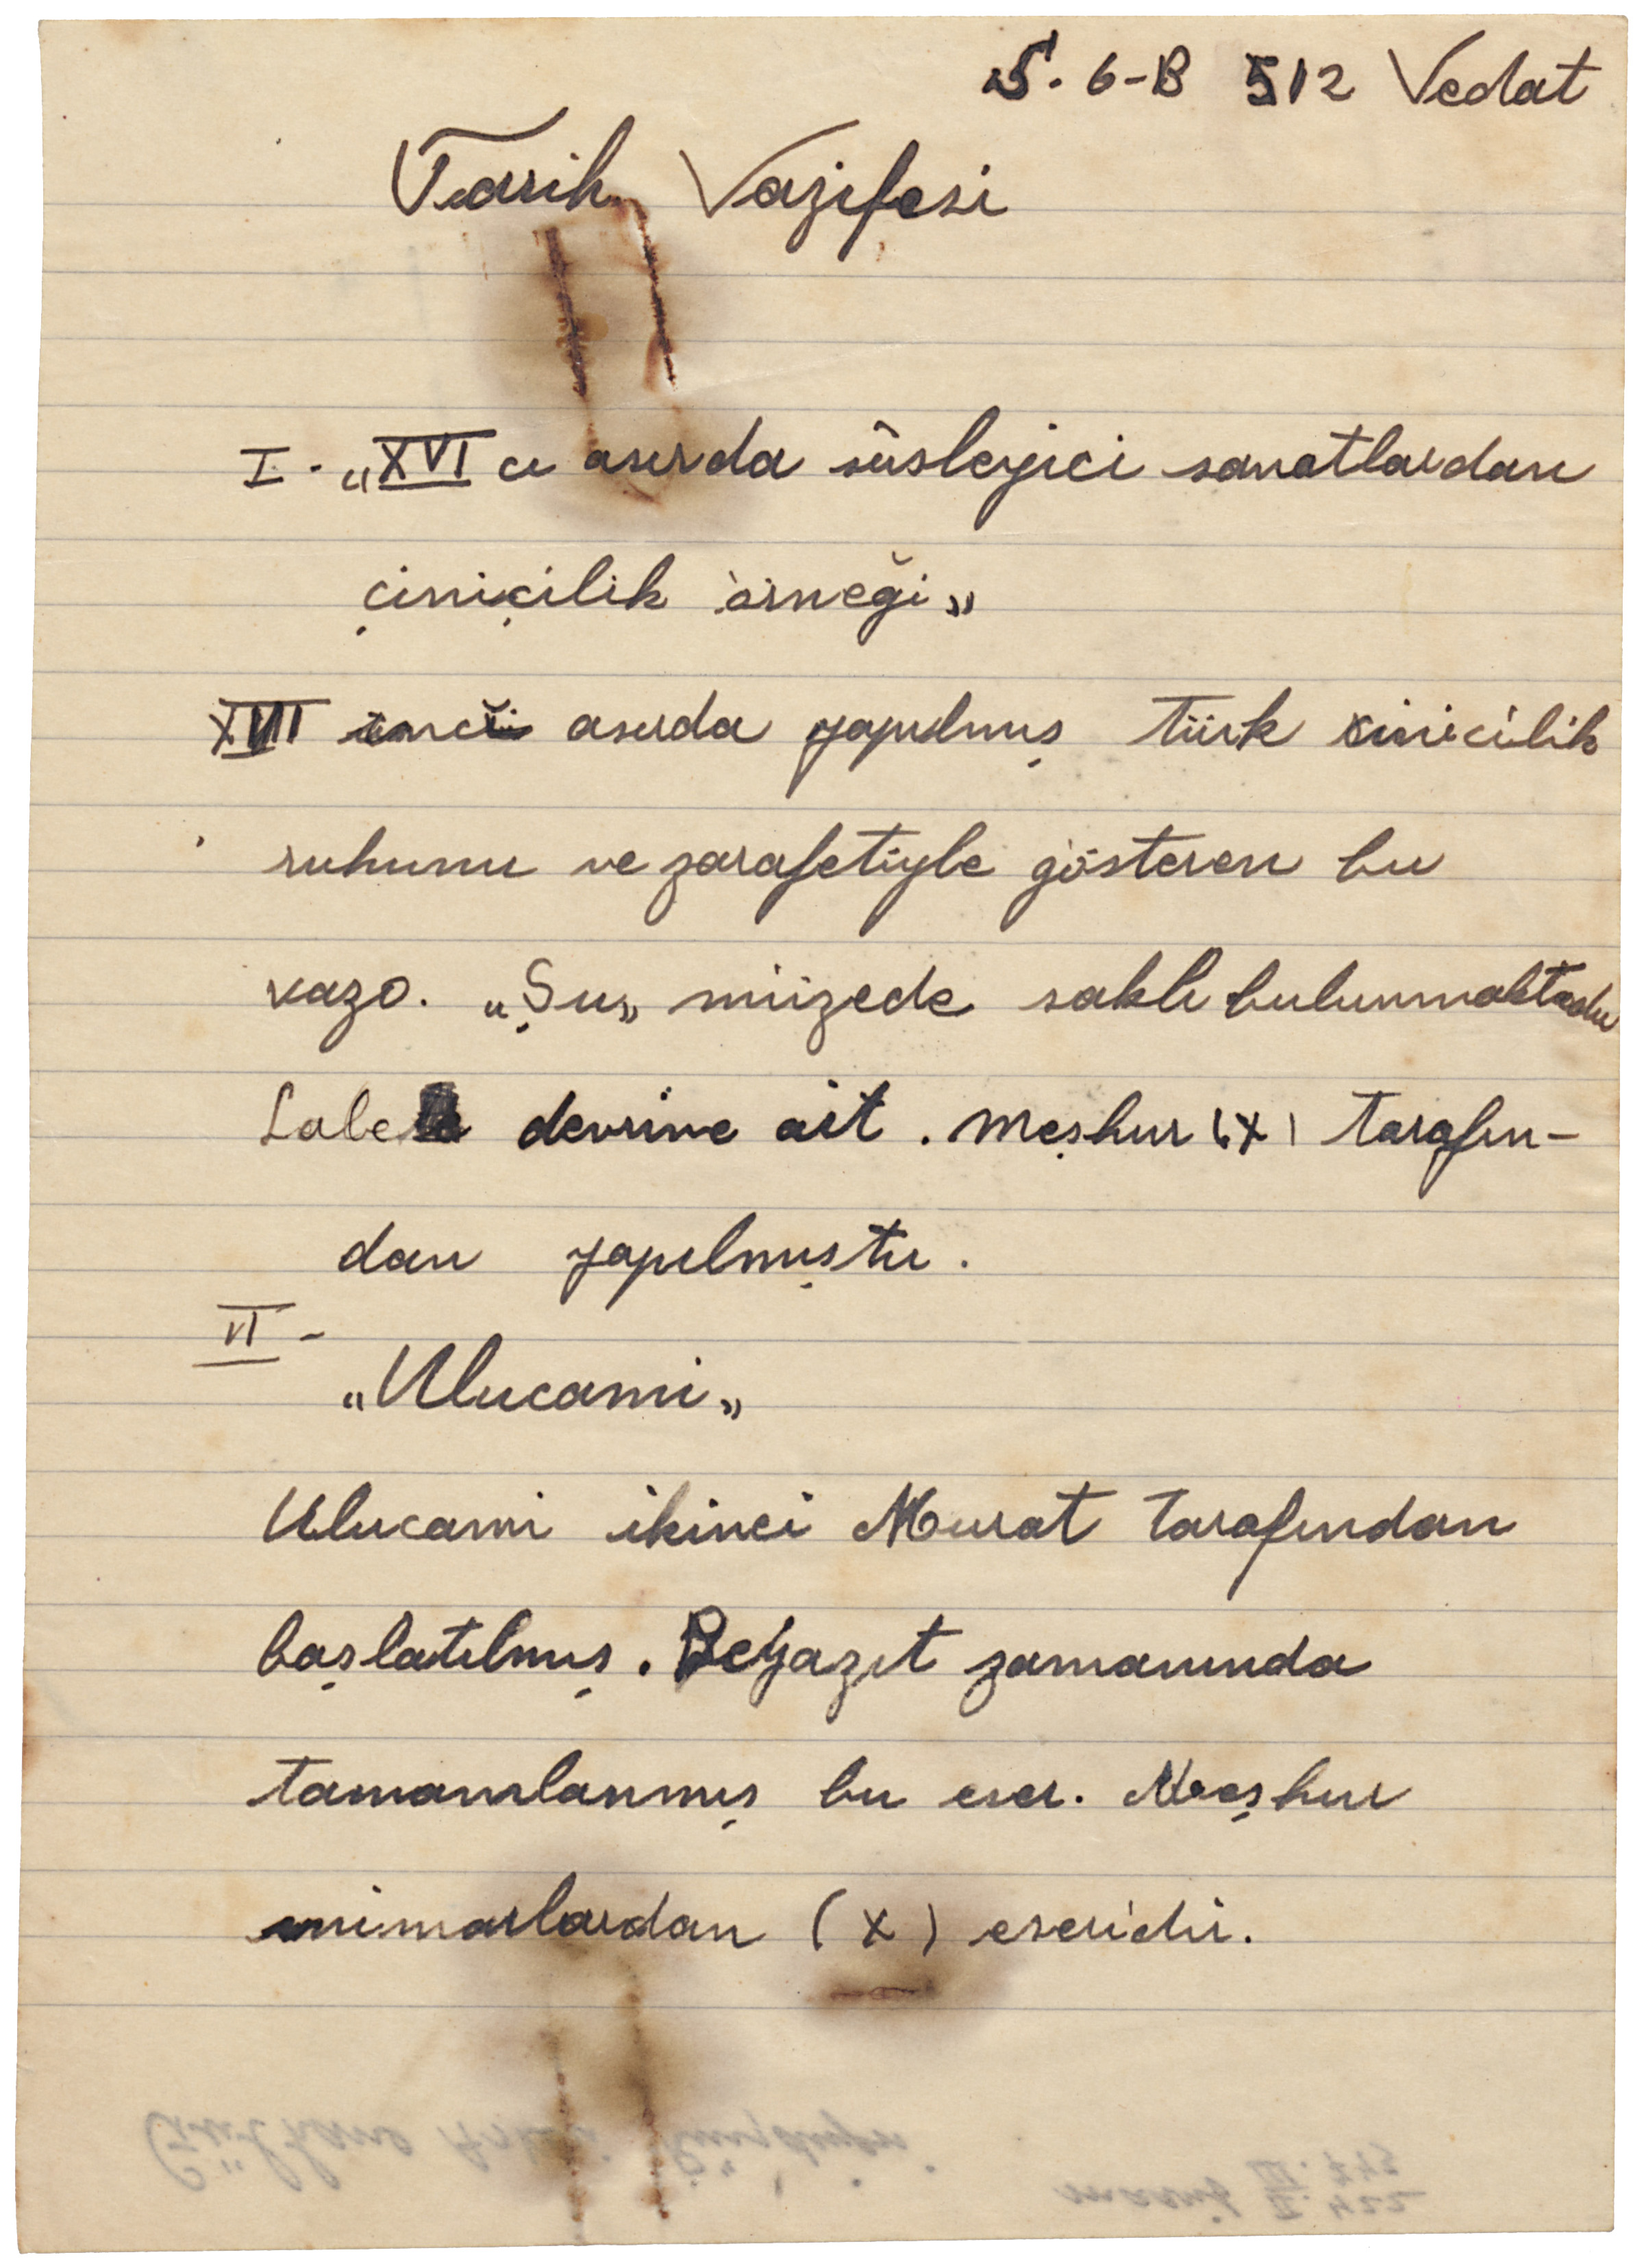 S. 6-B 512 Vedat
Tarih Vazifesi
I - „XVI cı asırda süsleyici sanatlardan
çiniçilik örneği„
XVII inci asırda yapılmış Türk çinicilik
ruhunu ve zarafetiyle gösteren bu
vazo. „Şu„ müzede saklı bulunmaktadır
Lale devrine ait. Meşhur (x) tarafın-
dan yapılmıştır.
VI -
„Ulucami„
Ulucami ikinci Murat tarafından
başlatılmış. Beyazıt zamanında
tamamlanmış bu eser. Meşhur
mimarlardan (x) eseridir.